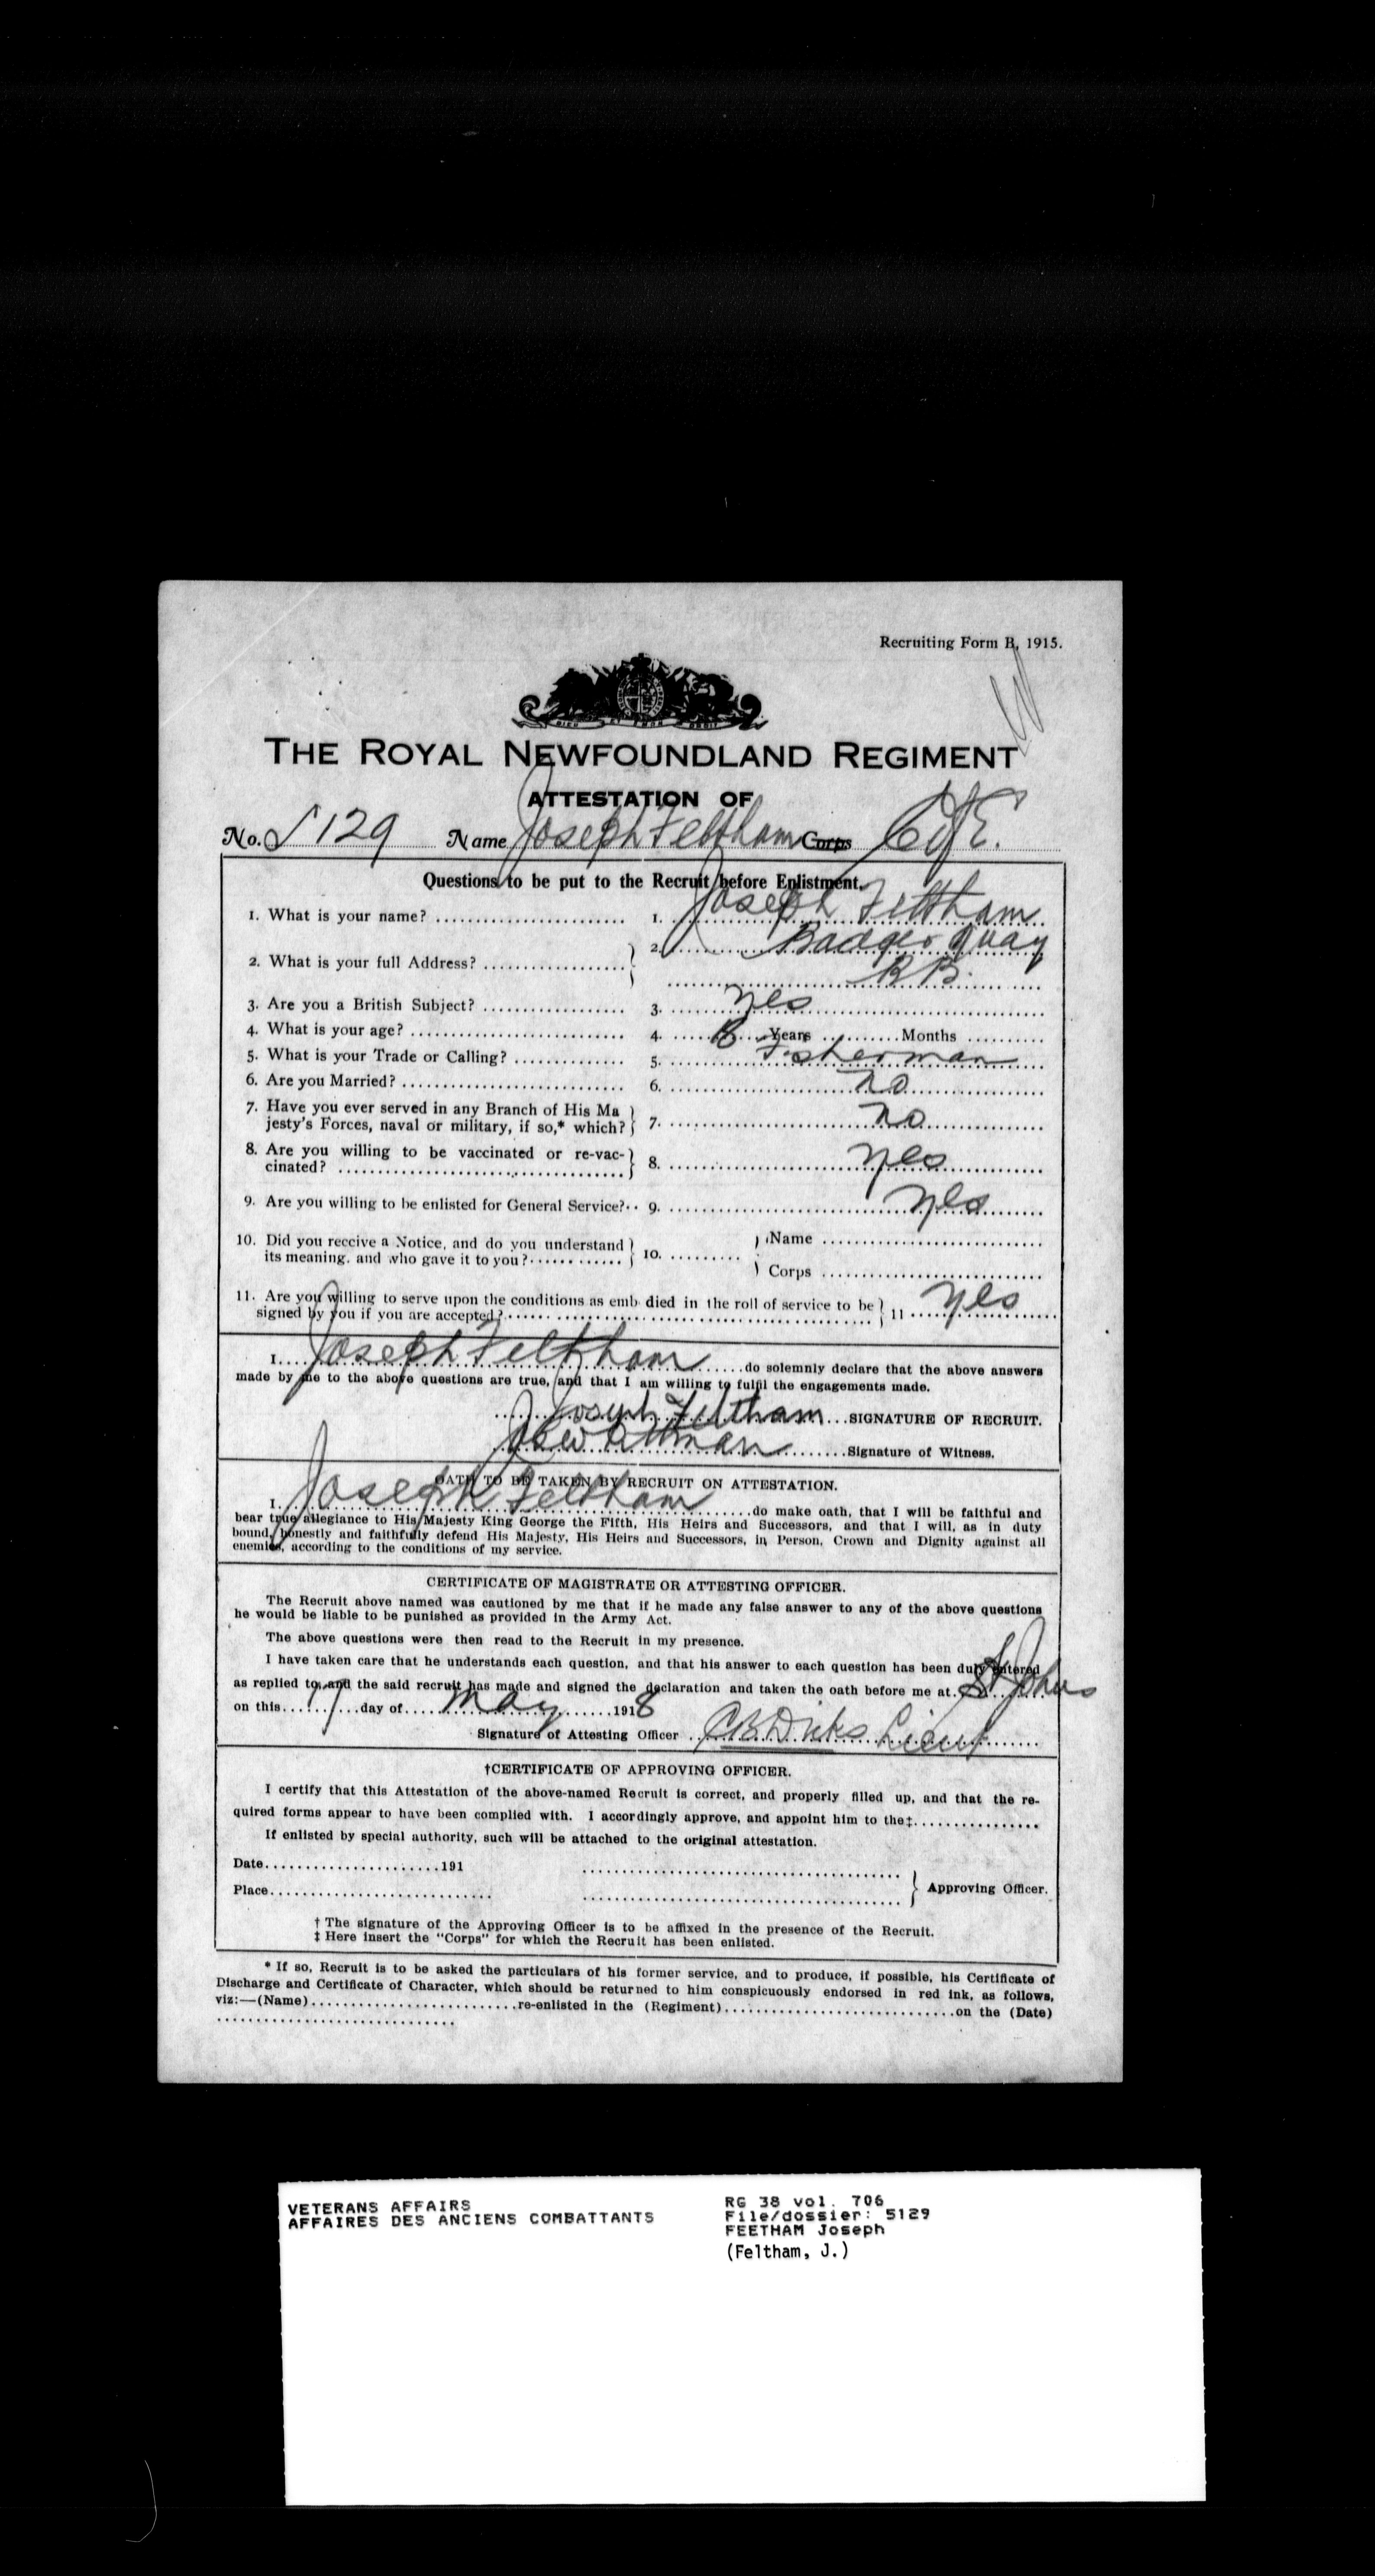 Recruiting Form B, 1915.
DIEU ET MON DROIT
THE ROYAL NEWFOUNDLAND REGIMENT
ATTESTATION OF
No. 5129 Name Joseph Feltham Corps
Questions to be put to the Recruit before Enlistment.
1. What is your name? 1. Joseph Feltham
2. What is your full Address? 2. Badger Quay
B B.
3. Are you a British Subject? 3. Yes
4. What is your age? 4. 18 Years Months
5. What is your Trade or Calling? 5. Fisherman
6. Are you Married? 6. No
7. Have you ever served in any Branch of His Ma
jesty's Forces, naval or military, if so,* which? 7. No
8. Are you willing to be vaccinated or re-vac-
cinated? 8. Yes
9. Are you willing to be enlisted for General Service? 9. Yes
10. Did you receive a Notice, and do you understand
its meaning, and who gave it to you? 10. Name
Corps
11. Are you willing to serve upon the conditions as emb died in the roll of service to be
signed by you if you are accepted? 11 Yes
I Joseph Feltham do solemnly declare that the above answers
made by me to the above questions are true, and that I am willing to fulfil the engagements made.
Joseph Feltham SIGNATURE OF RECRUIT.
Signature of Witness.
OATH TO BE TAKEN BY RECRUIT ON ATTESTATION.
I Joseph Feltham do make oath, that I will be faithful and
bear true allegiance to His Majesty King George the Fifth, His Heirs and Successors, and that I will, as in duty
bound, honestly and faithfully defend His Majesty, His Heirs and Successors, in Person, Crown and Dignity against all
enemies, according to the conditions of my service.
CERTIFICATE OF MAGISTRATE OR ATTESTING OFFICER.
The Recruit above named was cautioned by me that if he made any false answer to any of the above questions
he would be liable to be punished as provided in the Army Act.
The above questions were then read to the Recruit in my presence.
I have taken care that he understands each question, and that his answer to each question has been duly entered
as replied to, and the said recruit has made and signed the declaration and taken the oath before me at St Johns
on this 17 day of May 1918
Signature of Attesting Officer C B Dicks Lieut
†CERTIFICATE OF APPROVING OFFICER.
I certify that this Attestation of the above-named Recruit is correct, and properly filled up, and that the re-
quired forms appear to have been complied with. I accordingly approve, and appoint him to the‡
If enlisted by special authority, such will be attached to the original attestation.
Date 191
Place Approving Officer.
† The signature of the Approving Officer is to be affixed in the presence of the Recruit.
‡ Here insert the "Corps" for which the Recruit has been enlisted.
* If so, Recruit is to be asked the particulars of his former service, and to produce, if possible, his Certificate of
Discharge and Certificate of Character, which should be returned to him conspicuously endorsed in red ink, as follows,
viz:—(Name) re-enlisted in the (Regiment) on the (Date)
VETERANS AFFAIRS
AFFAIRES DES ANCIENS COMBATTANTS
RG 38 vol. 706
File/dossier: 5129
FEETHAM Joseph
(Feltham, J.)